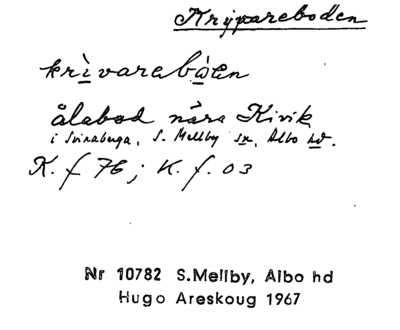 Krypareboden
krìvarebòen
ålabod nära Kivik
i Svinaberga, S. Mellby sn, Albo hd.
K. f 76; K. f. 03
Nr 10782 S.Mellby, Albo hd
Hugo Areskoug 1967